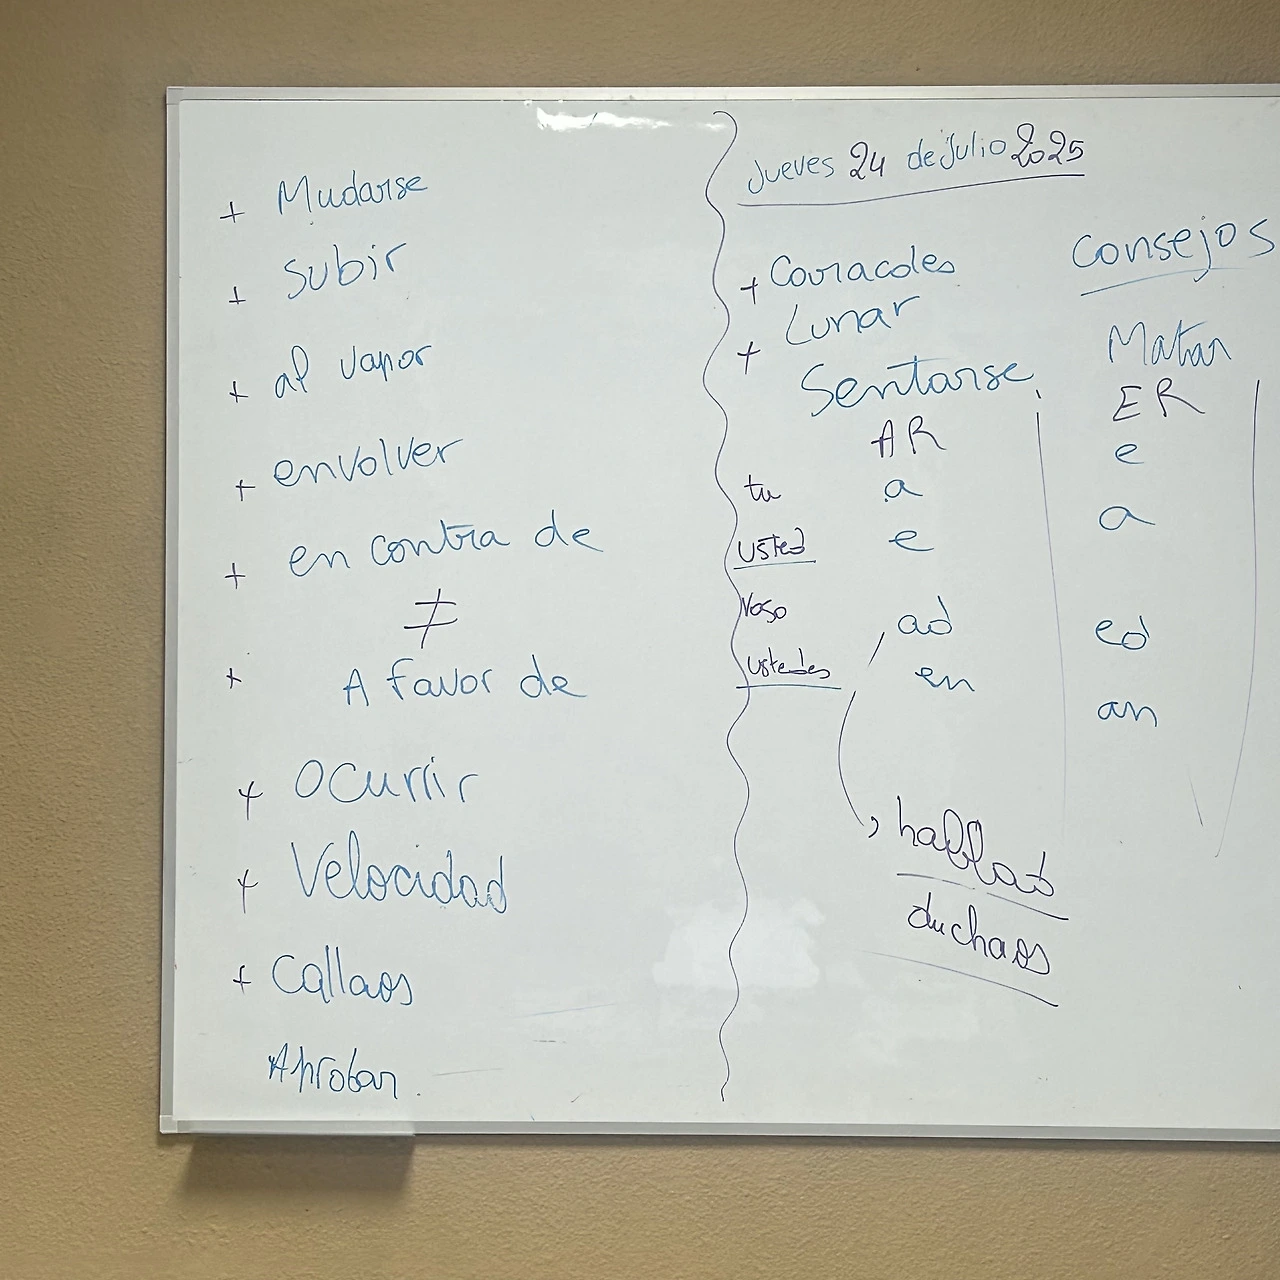 + Mudarse
+ Subir
+ al vapor
+ envolver
+ en contra de
≠
+ A favor de
+ ocurrir
+ Velocidad
+ Callaos
Aprobar
Jueves 24 de Julio 2025
+ Caracoles
+ Lunar
Sentarse
AR
tu a
usted e
Voso ad
ustedes en
hablad
duchaos
Consejos
Matar
ER
e
a
ed
an